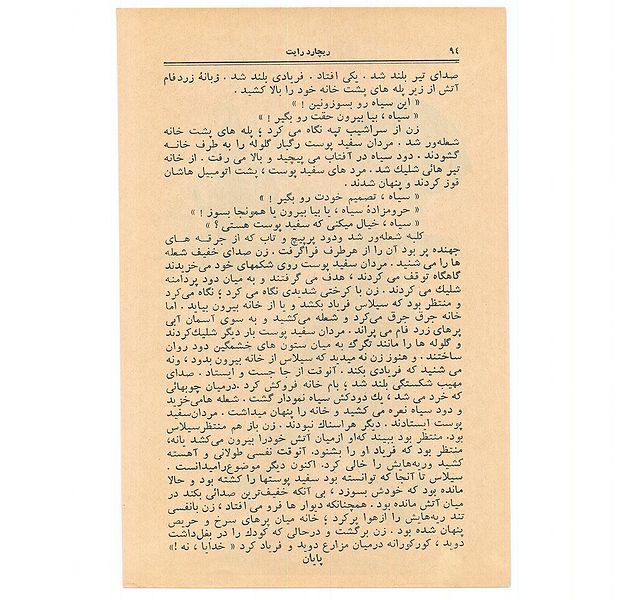 ۹۴
ریچارد رایت
صدای تیر بلند شد . یکی افتاد . فریادی بلند شد . زبانهٔ زردفام
آتش از زیر پله های پشت خانه خود را بالا کشید .
« این سیاه رو بسوزونین ! »
« سیاه ، بیا بیرون حقت رو بگیر ! »
زن از سراشیب تپه نگاه می کرد ؛ پله های پشت خانه
شعله‌ور شد . مردان سفید پوست رگبار گلوله را به طرف خانه
گشودند . دود سیاه در آفتاب می پیچید و بالا می رفت . از خانه
تیر هائی شلیك شد . مرد های سفید پوست ، پشت اتومبیل هاشان
قوز کردند و پنهان شدند .
« سیاه ، تصمیم خودت رو بگیر ! »
« حرومزادهٔ سیاه ، یا بیا بیرون یا همونجا بسوز ! »
« سیاه ، خیال میکنی که سفید پوست هستی ؟ »
کلبه شعله‌ور شد ودود پرپیچ و تاب که از جرقه های
جهنده پر بود آن را از هرطرف فراگرفت . زن صدای خفیف شعله
ها را می شنید . مردان سفید پوست روی شکمهای خود می‌خزیدند
گاهگاه توقف می کردند ، هدف می گرفتند و به میان دود پردامنه
شلیك می کردند . زن با کرختی شدیدی نگاه می کرد ؛ نگاه می‌کرد
و منتظر بود که سیلاس فریاد بکشد و یا از خانه بیرون بیاید . اما
خانه جرق جرق می‌کرد و شعله می‌کشید و به سوی آسمان آبی
پرهای زرد فام می پراند . مردان سفید پوست بار دیگر شلیك‌کردند
و گلوله ها را مانند تگرگ به میان ستون های خشمگین دود روان
ساختند . و هنوز زن نه میدید که سیلاس از خانه بیرون بدود ، ونه
می شنید که فریادی بکند . آنوقت از جا جست و ایستاد . صدای
مهیب شکستگی بلند شد ؛ بام خانه فروکش کرد .درمیان چوبهائی
که خرد می شد ، یك دودکش سیاه نمودار گشت . شعله هامی‌خزید
و دود سیاه نعره می کشید و خانه را پنهان میداشت . مردان‌سفید
پوست ایستادند . دیگر هراسناك نبودند . زن باز هم منتظرسیلاس
بود. منتظر بود ببیند که‌او ازمیان آتش خودرا بیرون می‌کشد یانه،
منتظر بود که فریاد او را بشنود. آنوقت نفسی طولانی و آهسته
کشید وریه‌هایش را خالی کرد. اکنون دیگر موضوع‌رامیدانست .
سیلاس تا آنجا که توانسته بود سفید پوستها را کشته بود و حالا
مانده بود که خودش بسوزد ، بی آنکه خفیف‌ترین صدائی بکند در
میان آتش مانده بود . همچنانکه دیوار ها فرو می افتاد ، زن بانفسی
تند ریه‌هایش را ازهوا پرکرد ؛ خانه میان پرهای سرخ و حریص
پنهان شده بود . زن برگشت و درحالی که کودك را در بغل‌داشت
دوید ، کورکورانه درمیان مزارع دوید و فریاد کرد « خدایا ، نه !»
پایان